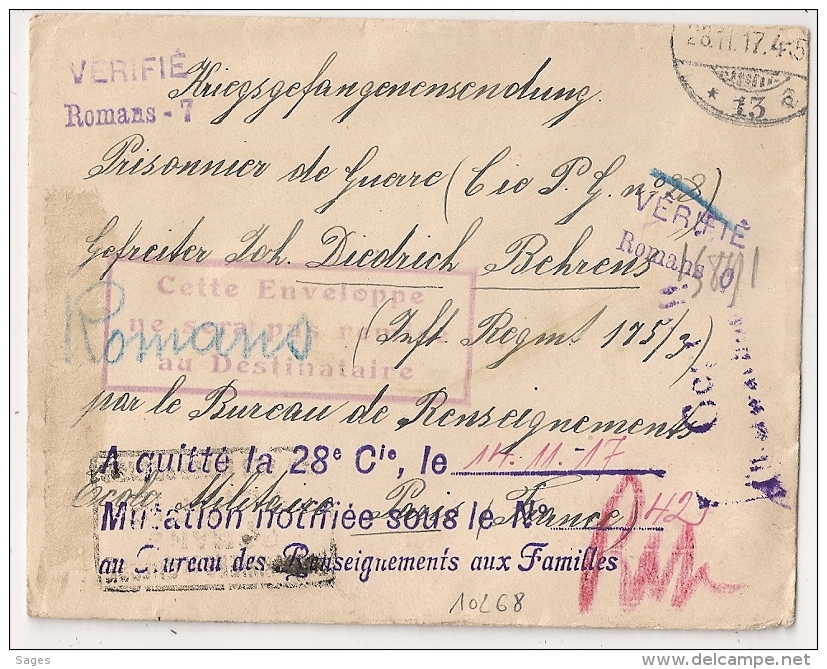 VERIFIÉ
Romans - 7
28.11.17.4-5
* 13 a
Kriegsgefangenensendung.
Prisonnier de Guerre (Cie P. G. nº 28)
VÉRIFIÉ
Romans
Gefreiter Joh. Diedrich Behrens
Cette Enveloppe
ne sera pas remise
au Destinataire
Romans
(Inft. Regmt 175/3)
par le Bureau de Renseignements
A quitté la 28e Cie, le 14.11.-17
Ecole Militaire Paris (France)
Mutation notifiée sous le No 42
au Bureau des Renseignements aux Familles
10268
Sages
www.delcampe.net